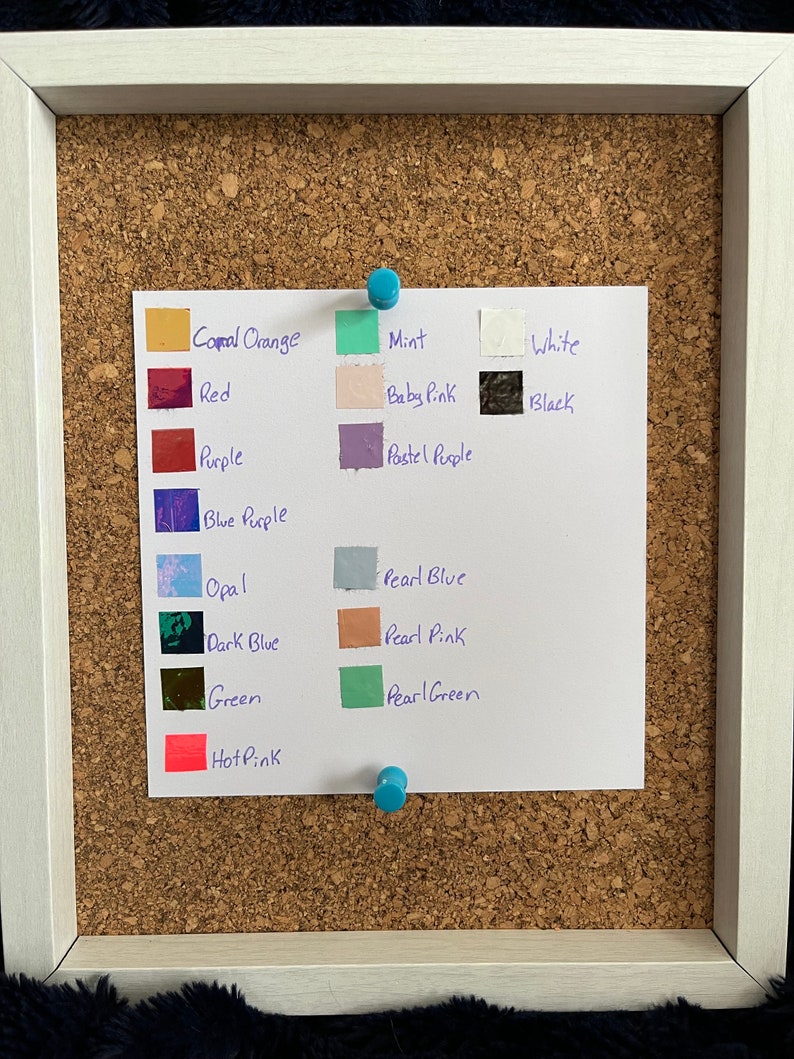 Coral Orange
Red
Purple
Blue Purple
Opal
Dark Blue
Green
Hot Pink
Mint
Baby Pink
Pastel Purple
Pearl Blue
Pearl Pink
Pearl Green
White
Black